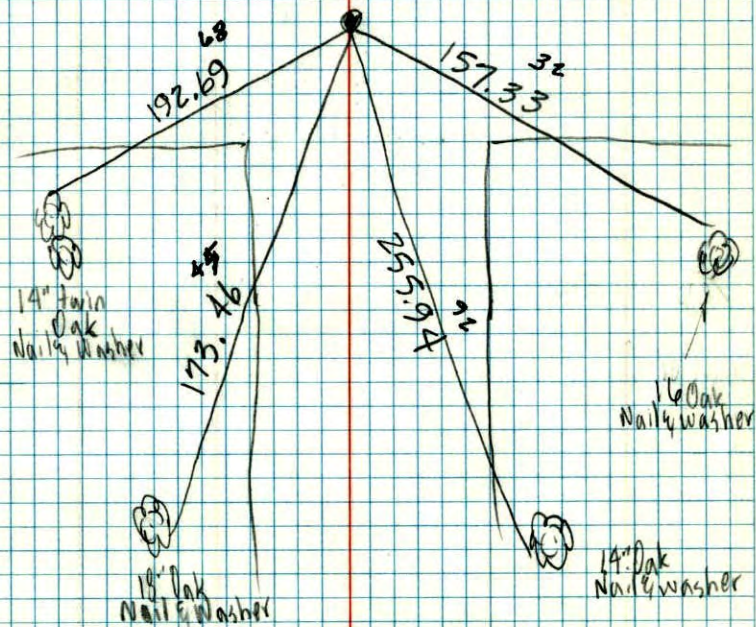 68
192.69
32
157.33
173.46
255.94
92
14" twin
Oak
Nail & Washer
16 Oak
Nail & washer
18" Oak
Nail & Washer
14" Oak
Nail & washer